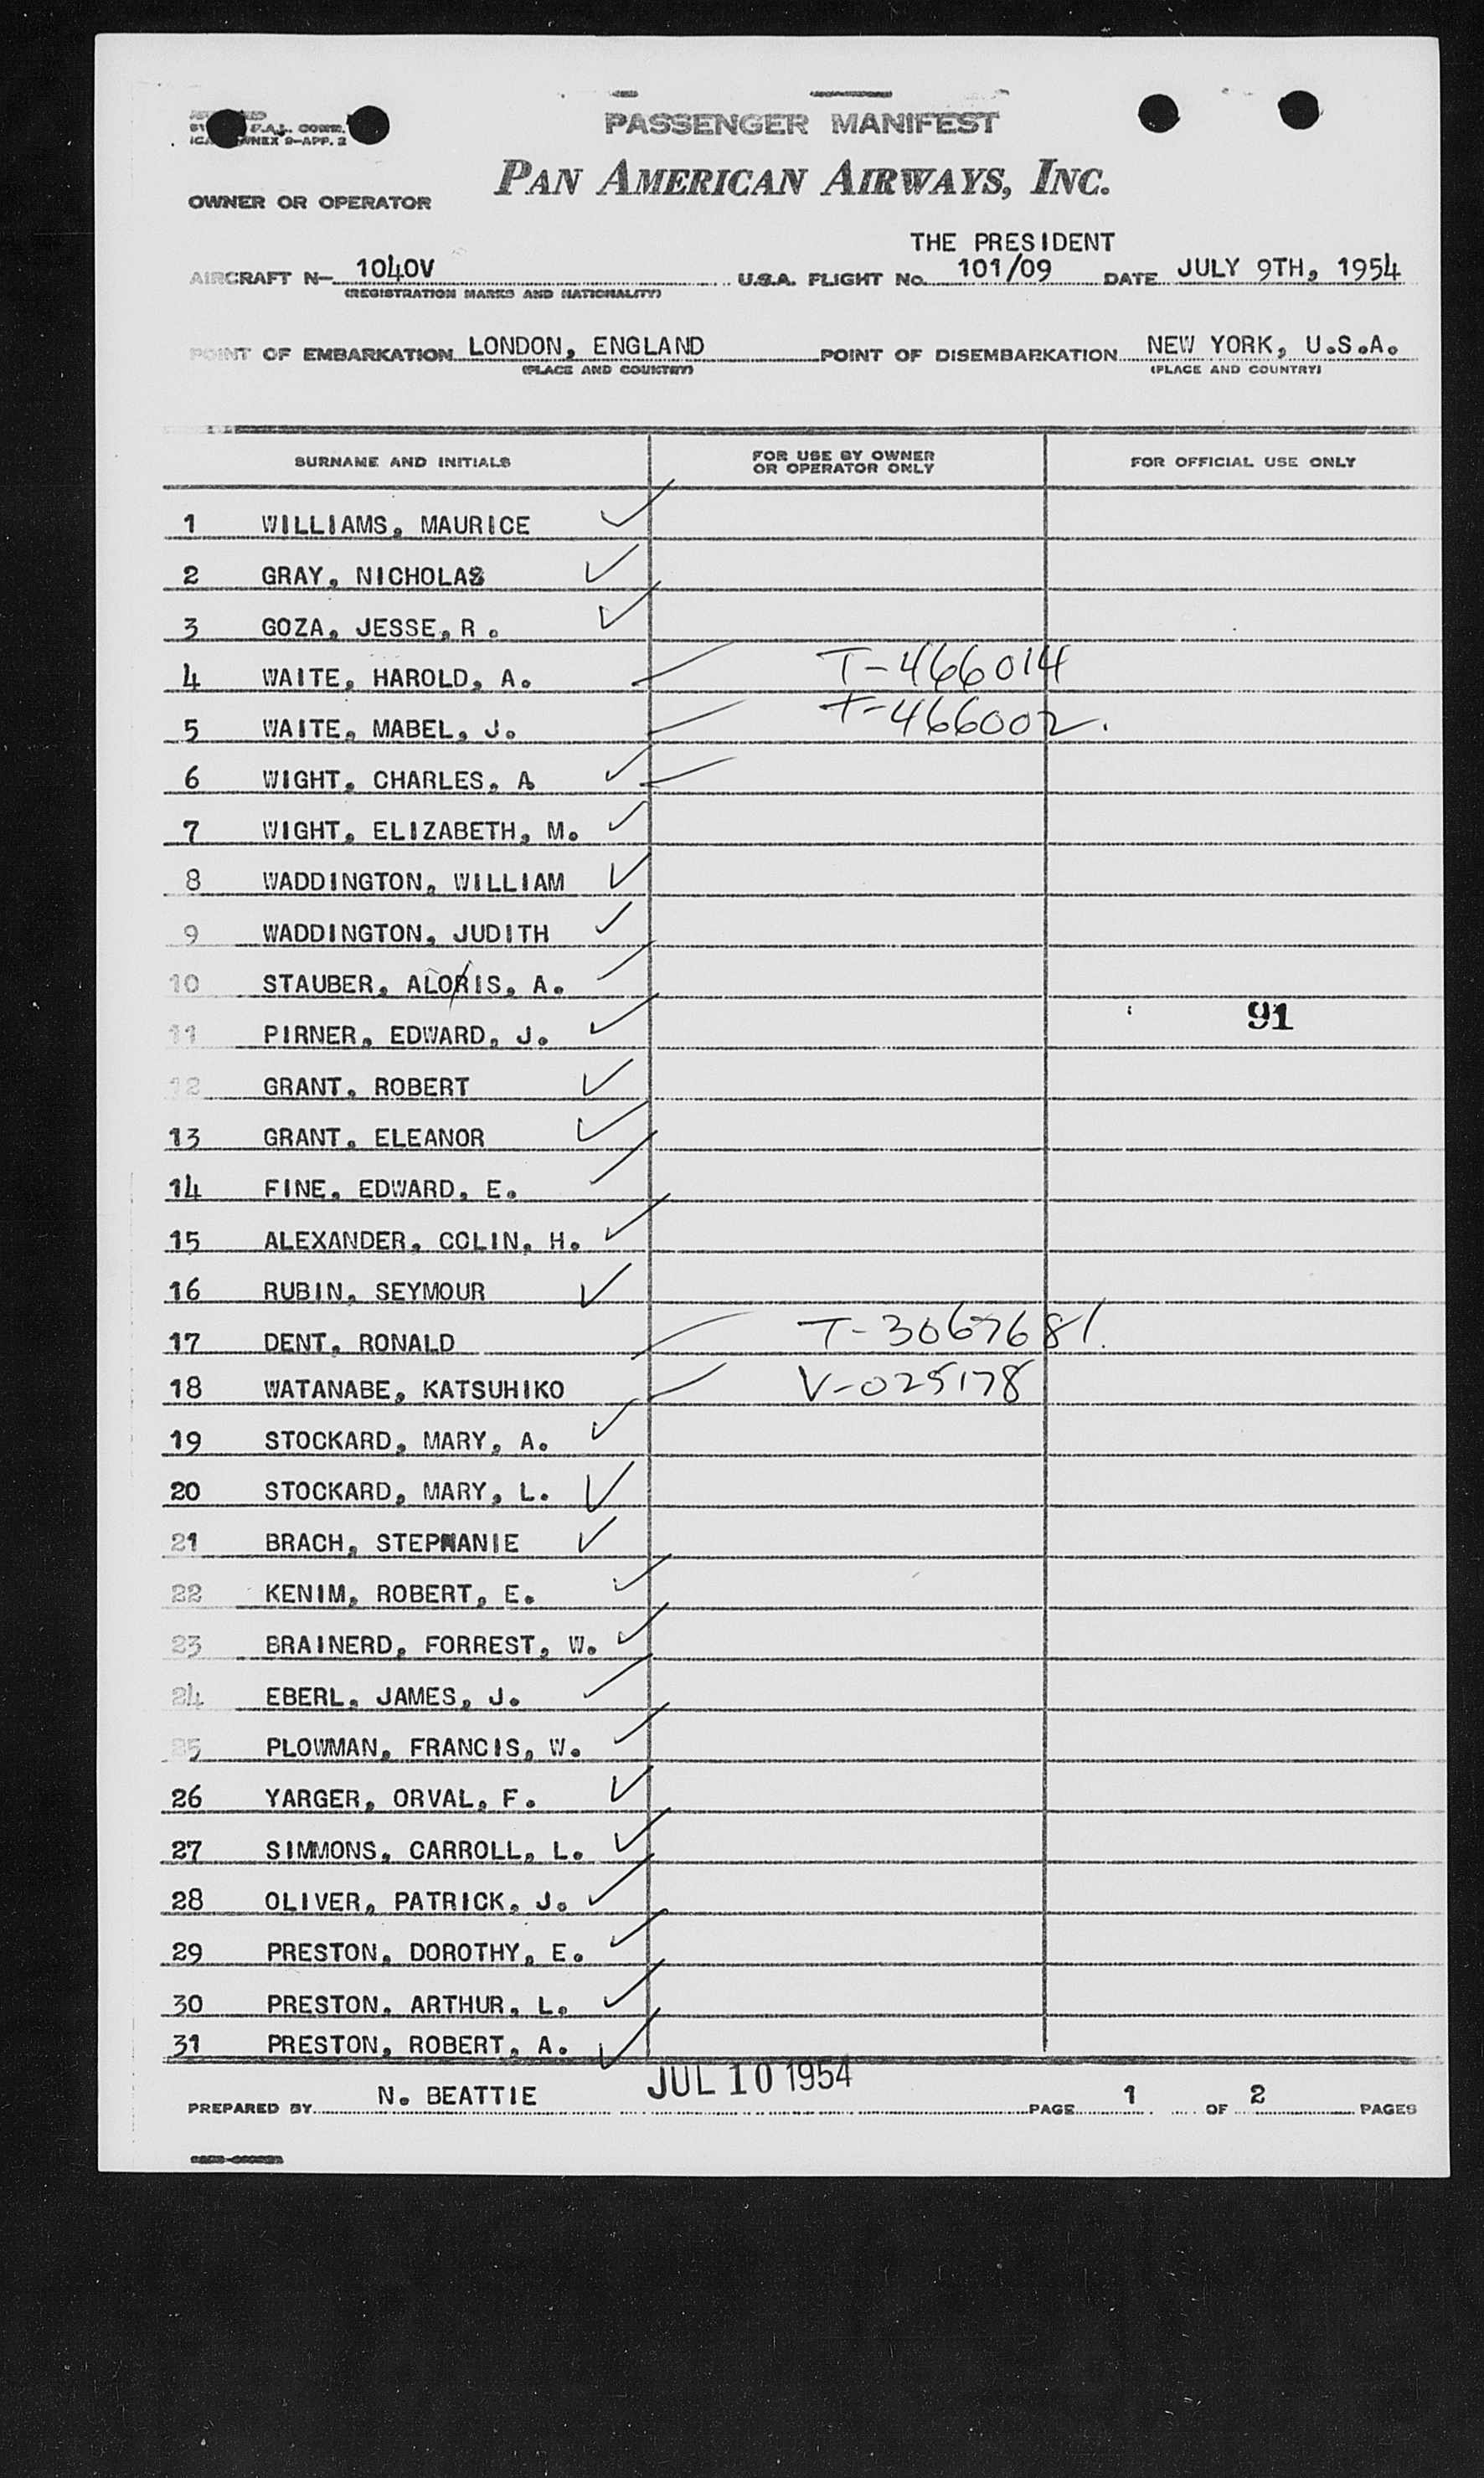 F.A.L. COMM.
ANNEX 9-APP. 2
PASSENGER MANIFEST
PAN AMERICAN AIRWAYS, INC.
OWNER OR OPERATOR
THE PRESIDENT
AIRCRAFT N- 1040V U.S.A. FLIGHT No. 101/09 DATE JULY 9TH, 1954
(REGISTRATION MARKS AND NATIONALITY)
POINT OF EMBARKATION LONDON, ENGLAND POINT OF DISEMBARKATION NEW YORK, U.S.A.
(PLACE AND COUNTRY) (PLACE AND COUNTRY)
SURNAME AND INITIALS FOR USE BY OWNER OR OPERATOR ONLY FOR OFFICIAL USE ONLY
1 WILLIAMS, MAURICE
2 GRAY, NICHOLAS
3 GOZA, JESSE, R.
4 WAITE, HAROLD, A. T-466014
5 WAITE, MABEL, J. T-466002.
6 WIGHT, CHARLES, A
7 WIGHT, ELIZABETH, M.
8 WADDINGTON, WILLIAM
9 WADDINGTON, JUDITH
10 STAUBER, ALORIS, A.
11 PIRNER, EDWARD, J. 91
12 GRANT, ROBERT
13 GRANT, ELEANOR
14 FINE, EDWARD, E.
15 ALEXANDER, COLIN, H.
16 RUBIN, SEYMOUR
17 DENT, RONALD T-3067681.
18 WATANABE, KATSUHIKO V-025178
19 STOCKARD, MARY, A.
20 STOCKARD, MARY, L.
21 BRACH, STEPHANIE
22 KENIM, ROBERT, E.
23 BRAINERD, FORREST, W.
24 EBERL, JAMES, J.
25 PLOWMAN, FRANCIS, W.
26 YARGER, ORVAL, F.
27 SIMMONS, CARROLL, L.
28 OLIVER, PATRICK, J.
29 PRESTON, DOROTHY, E.
30 PRESTON, ARTHUR, L.
31 PRESTON, ROBERT, A.
JUL 10 1954
PREPARED BY N. BEATTIE PAGE 1 OF 2 PAGES